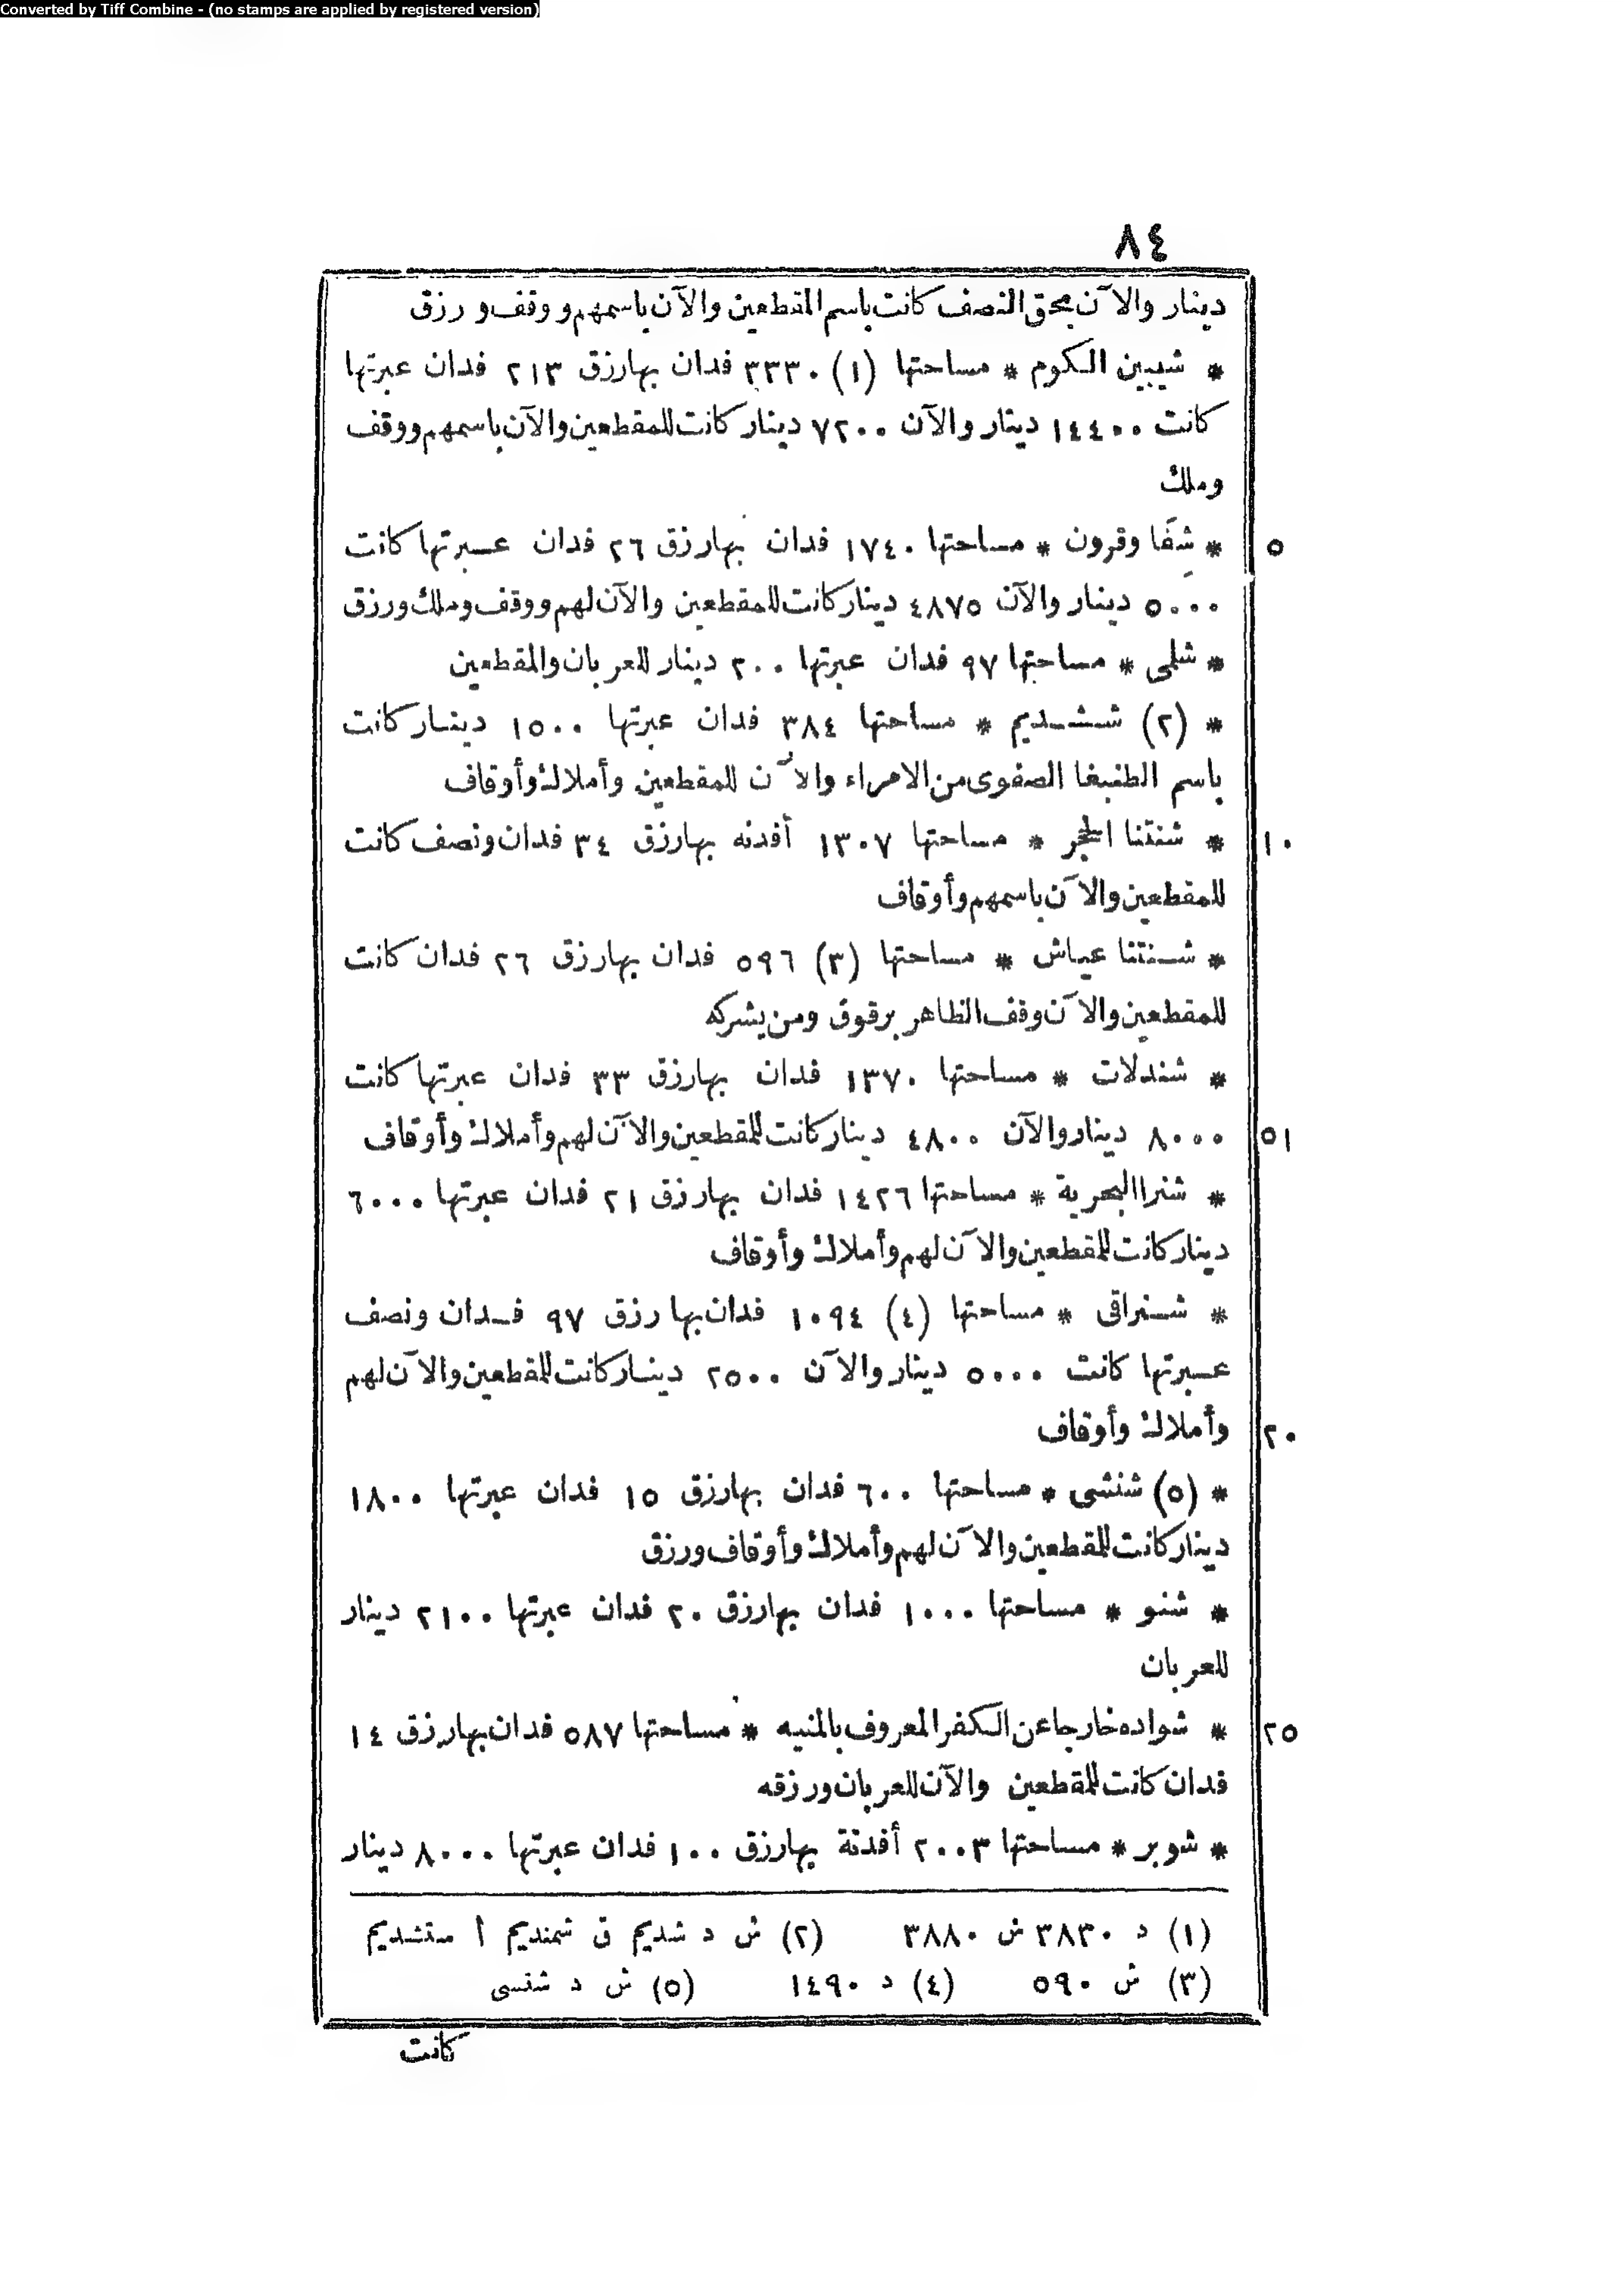 Converted by Tiff Combine - (no stamps are applied by registered version)
٨٤
دينار والآن بحق النصف كانت باسم المقطعين والآن باسمهم ووقف ورزق
* شيبين الكوم * مساحتها (١) ٣٣٣٠ فدان بها رزق ٢١٣ فدان عبرتها
كانت ١٤٤٠٠ دينار والآن ٧٢٠٠ دينار كانت للمقطعين والآن باسمهم ووقف
وملك
* شفَا وقرون * مساحتها ١٧٤٠ فدان بها رزق ٢٦ فدان عبرتها كانت ٥
٥٠٠٠ دينار والآن ٤٨٧٥ دينار كانت للمقطعين والآن لهم ووقف وملك ورزق
* شلمى * مساحتها ٩٧ فدان عبرتها ٢٠٠ دينار للعربان والمقطعين
* (٢) ششديم * مساحتها ٣٨٤ فدان عبرتها ١٥٠٠ دينار كانت
باسم الطنبغا الصفوى من الامراء والآن للمقطعين وأملاك وأوقاف
* شنتنا الحجر * مساحتها ١٣٠٧ أفدنه بها رزق ٣٤ فدان ونصف كانت ١٠
للمقطعين والآن باسمهم وأوقاف
* شنتنا عياش * مساحتها (٣) ٥٩٦ فدان بها رزق ٢٦ فدان كانت
للمقطعين والآن وقف الظاهر برقوق ومن يشركه
* شندلات * مساحتها ١٣٧٠ فدان بها رزق ٣٣ فدان عبرتها كانت
٨٠٠٠ دينار والآن ٤٨٠٠ دينار كانت للمقطعين والآن لهم وأملاك وأوقاف ٥١
* شنرا البحرية * مساحتها ١٤٢٦ فدان بها رزق ٢١ فدان عبرتها ٦٠٠٠
دينار كانت للمقطعين والآن لهم وأملاك وأوقاف
* شنراقى * مساحتها (٤) ١٠٩٤ فدان بها رزق ٩٧ فدان ونصف
عبرتها كانت ٥٠٠٠ دينار والآن ٢٥٠٠ دينار كانت للمقطعين والآن لهم
وأملاك وأوقاف ٢٠
* (٥) شنشى * مساحتها ٦٠٠ فدان بها رزق ١٥ فدان عبرتها ١٨٠٠
دينار كانت للمقطعين والآن لهم وأملاك وأوقاف ورزق
* شنو * مساحتها ١٠٠٠ فدان بها رزق ٢٠ فدان عبرتها ٢١٠٠ دينار
للعربان
* شواده خارجا عن الكفر المعروف بالمنيه * مساحتها ٥٨٧ فدان بها رزق ١٤ ٢٥
فدان كانت للمقطعين والآن للعربان ورزقه
* شوبر * مساحتها ٢٠٠٣ أفدنة بها رزق ١٠٠ فدان عبرتها ٨٠٠٠ دينار
(١) د ٣٨٣٠ ش ٣٨٨٠ (٢) ش د شديم ق شمنديم أ ستشديم
(٣) ش ٥٩٠ (٤) د ١٤٩٠ (٥) ش د شنسى
كانت